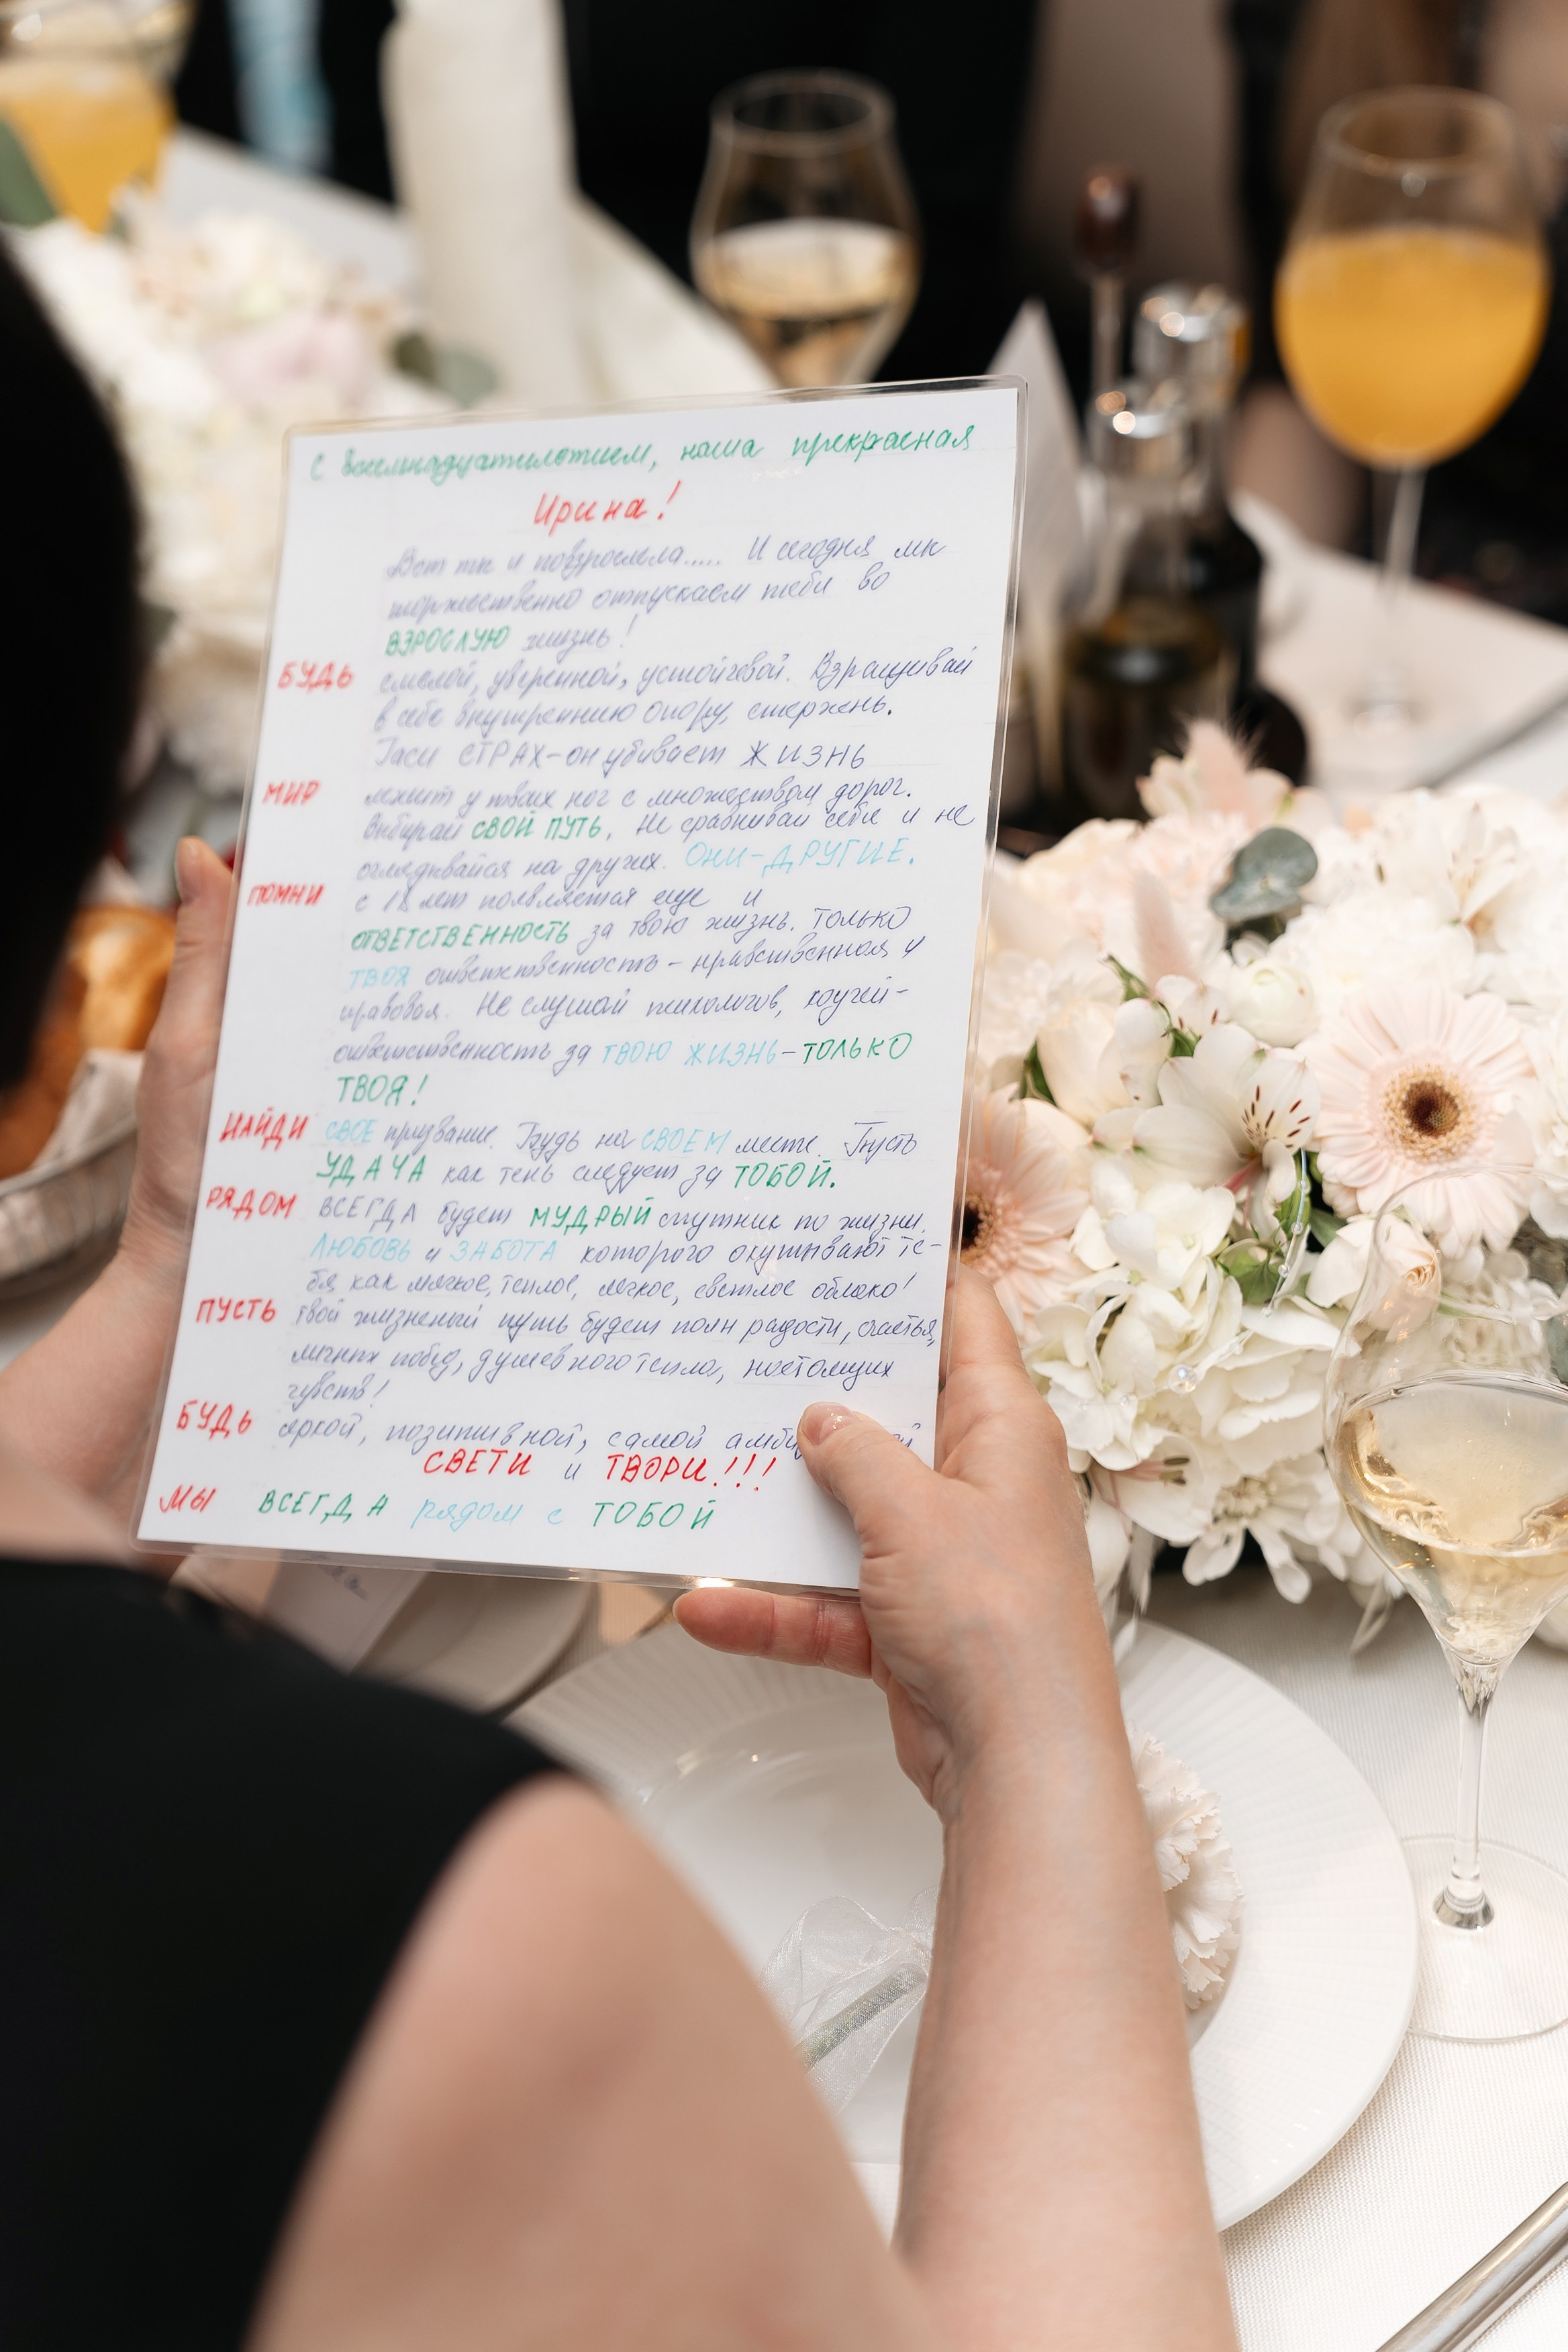 С Восемнадцатилетием, наша прекрасная
Ирина!
Вот ты и повзрослела..... И сегодня мы
торжественно отпускаем тебя во
ВЗРОСЛУЮ жизнь!
БУДЬ смелой, уверенной, устойчевой. Взращивай
в себе внутреннюю опору, стержень.
Гаси СТРАХ-он убивает ЖИЗНЬ
МИР лежит у твоих ног с множеством дорог.
Выбирай СВОЙ ПУТЬ. Не сравнивай себя и не
оглядывайся на других. ОНИ-ДРУГИЕ.
ПОМНИ с 18 лет появляется еще и
ОТВЕТСТВЕННОСТЬ за твою жизнь. ТОЛЬКО
ТВОЯ ответственность - нравственная и
правовая. Не слушай психологов, коучей-
ответственность за ТВОЮ ЖИЗНЬ-ТОЛЬКО
ТВОЯ!
НАЙДИ СВОЕ призвание. Будь на СВОЕМ месте. Пусть
УДАЧА как тень следует за ТОБОЙ.
РЯДОМ ВСЕГДА будет МУДРЫЙ спутник по жизни.
ЛЮБОВЬ и ЗАБОТА которого окутывают те-
бя как мягкое, теплое, легкое, светлое облако!
ПУСТЬ твой жизненый путь будет полн радости, счастья,
личных побед, душевного тепла, настоящих
чувств!
БУДЬ яркой, позитивной, самой
СВЕТИ и ТВОРИ!!!
МЫ ВСЕГДА рядом с ТОБОЙ